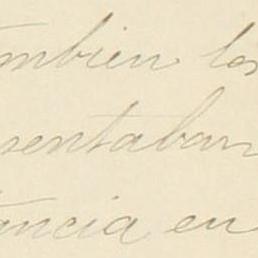 ambien los
sentaban
tancia en